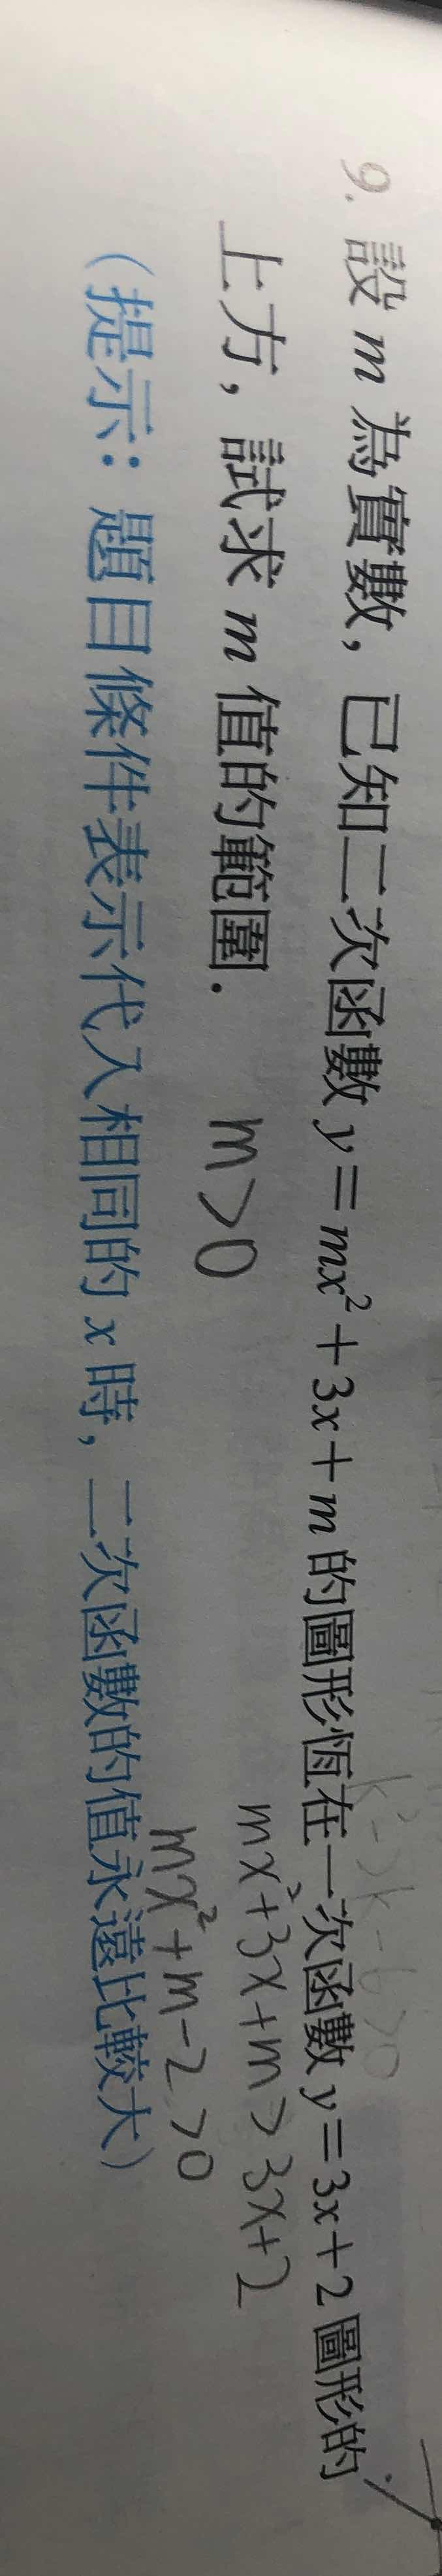 9. 設 m 為實數，已知二次函數 y＝mx²＋3x＋m 的圖形恆在一次函數 y＝3x＋2 圖形的
上方，試求 m 值的範圍．
m＞0
mx²+3x+m＞3x+2
mx²+m-2＞0
（提示：題目條件表示代入相同的 x 時，二次函數的值永遠比較大）